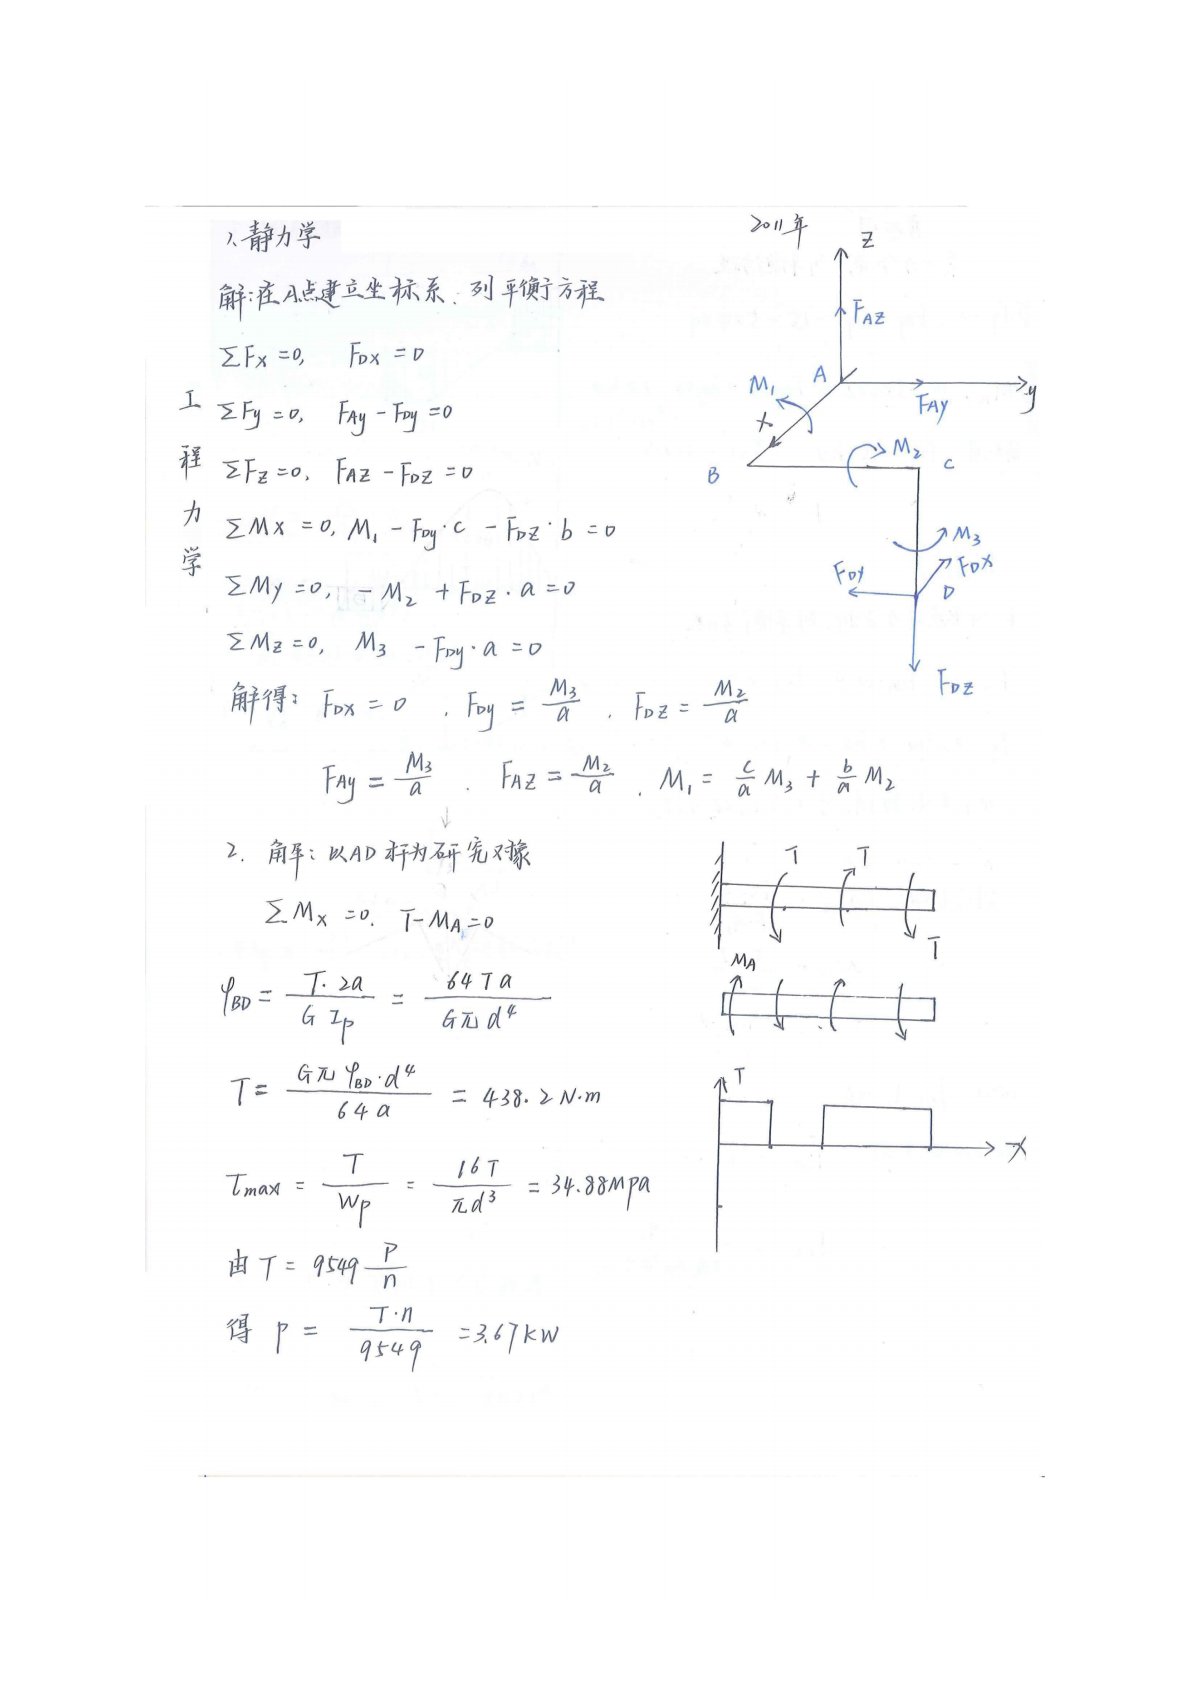 2011年
1、静力学
解:在A点建立坐标系、列平衡方程
ΣFx=0, FDx=0
ΣFy=0, FAy-FDy=0
ΣFz=0, FAZ-FDZ=0
ΣMx=0, M1-FDy·c-FDZ·b=0
ΣMy=0, -M2+FDZ·a=0
ΣMz=0, M3-FDy·a=0
解得: FDx=0, FDy=M3/a, FDZ=M2/a
FAy=M3/a, FAZ=M2/a, M1=c/a M3+b/a M2
工
程
力
学
Z
FAZ
A
M1
y
FAY
x
M2
B
C
M3
FDY
FDX
D
FDZ
2. 解:以AD杆为研究对象
ΣMx=0. T-MA=0
φBD=T·2a/GIp=64Ta/Gπd⁴
T=GπφBD·d⁴/64a=438.2N·m
τmax=T/Wp=16T/πd³=34.88Mpa
由T=9549 P/n
得 P=T·n/9549=3.67kW
T T
T
MA
T
x